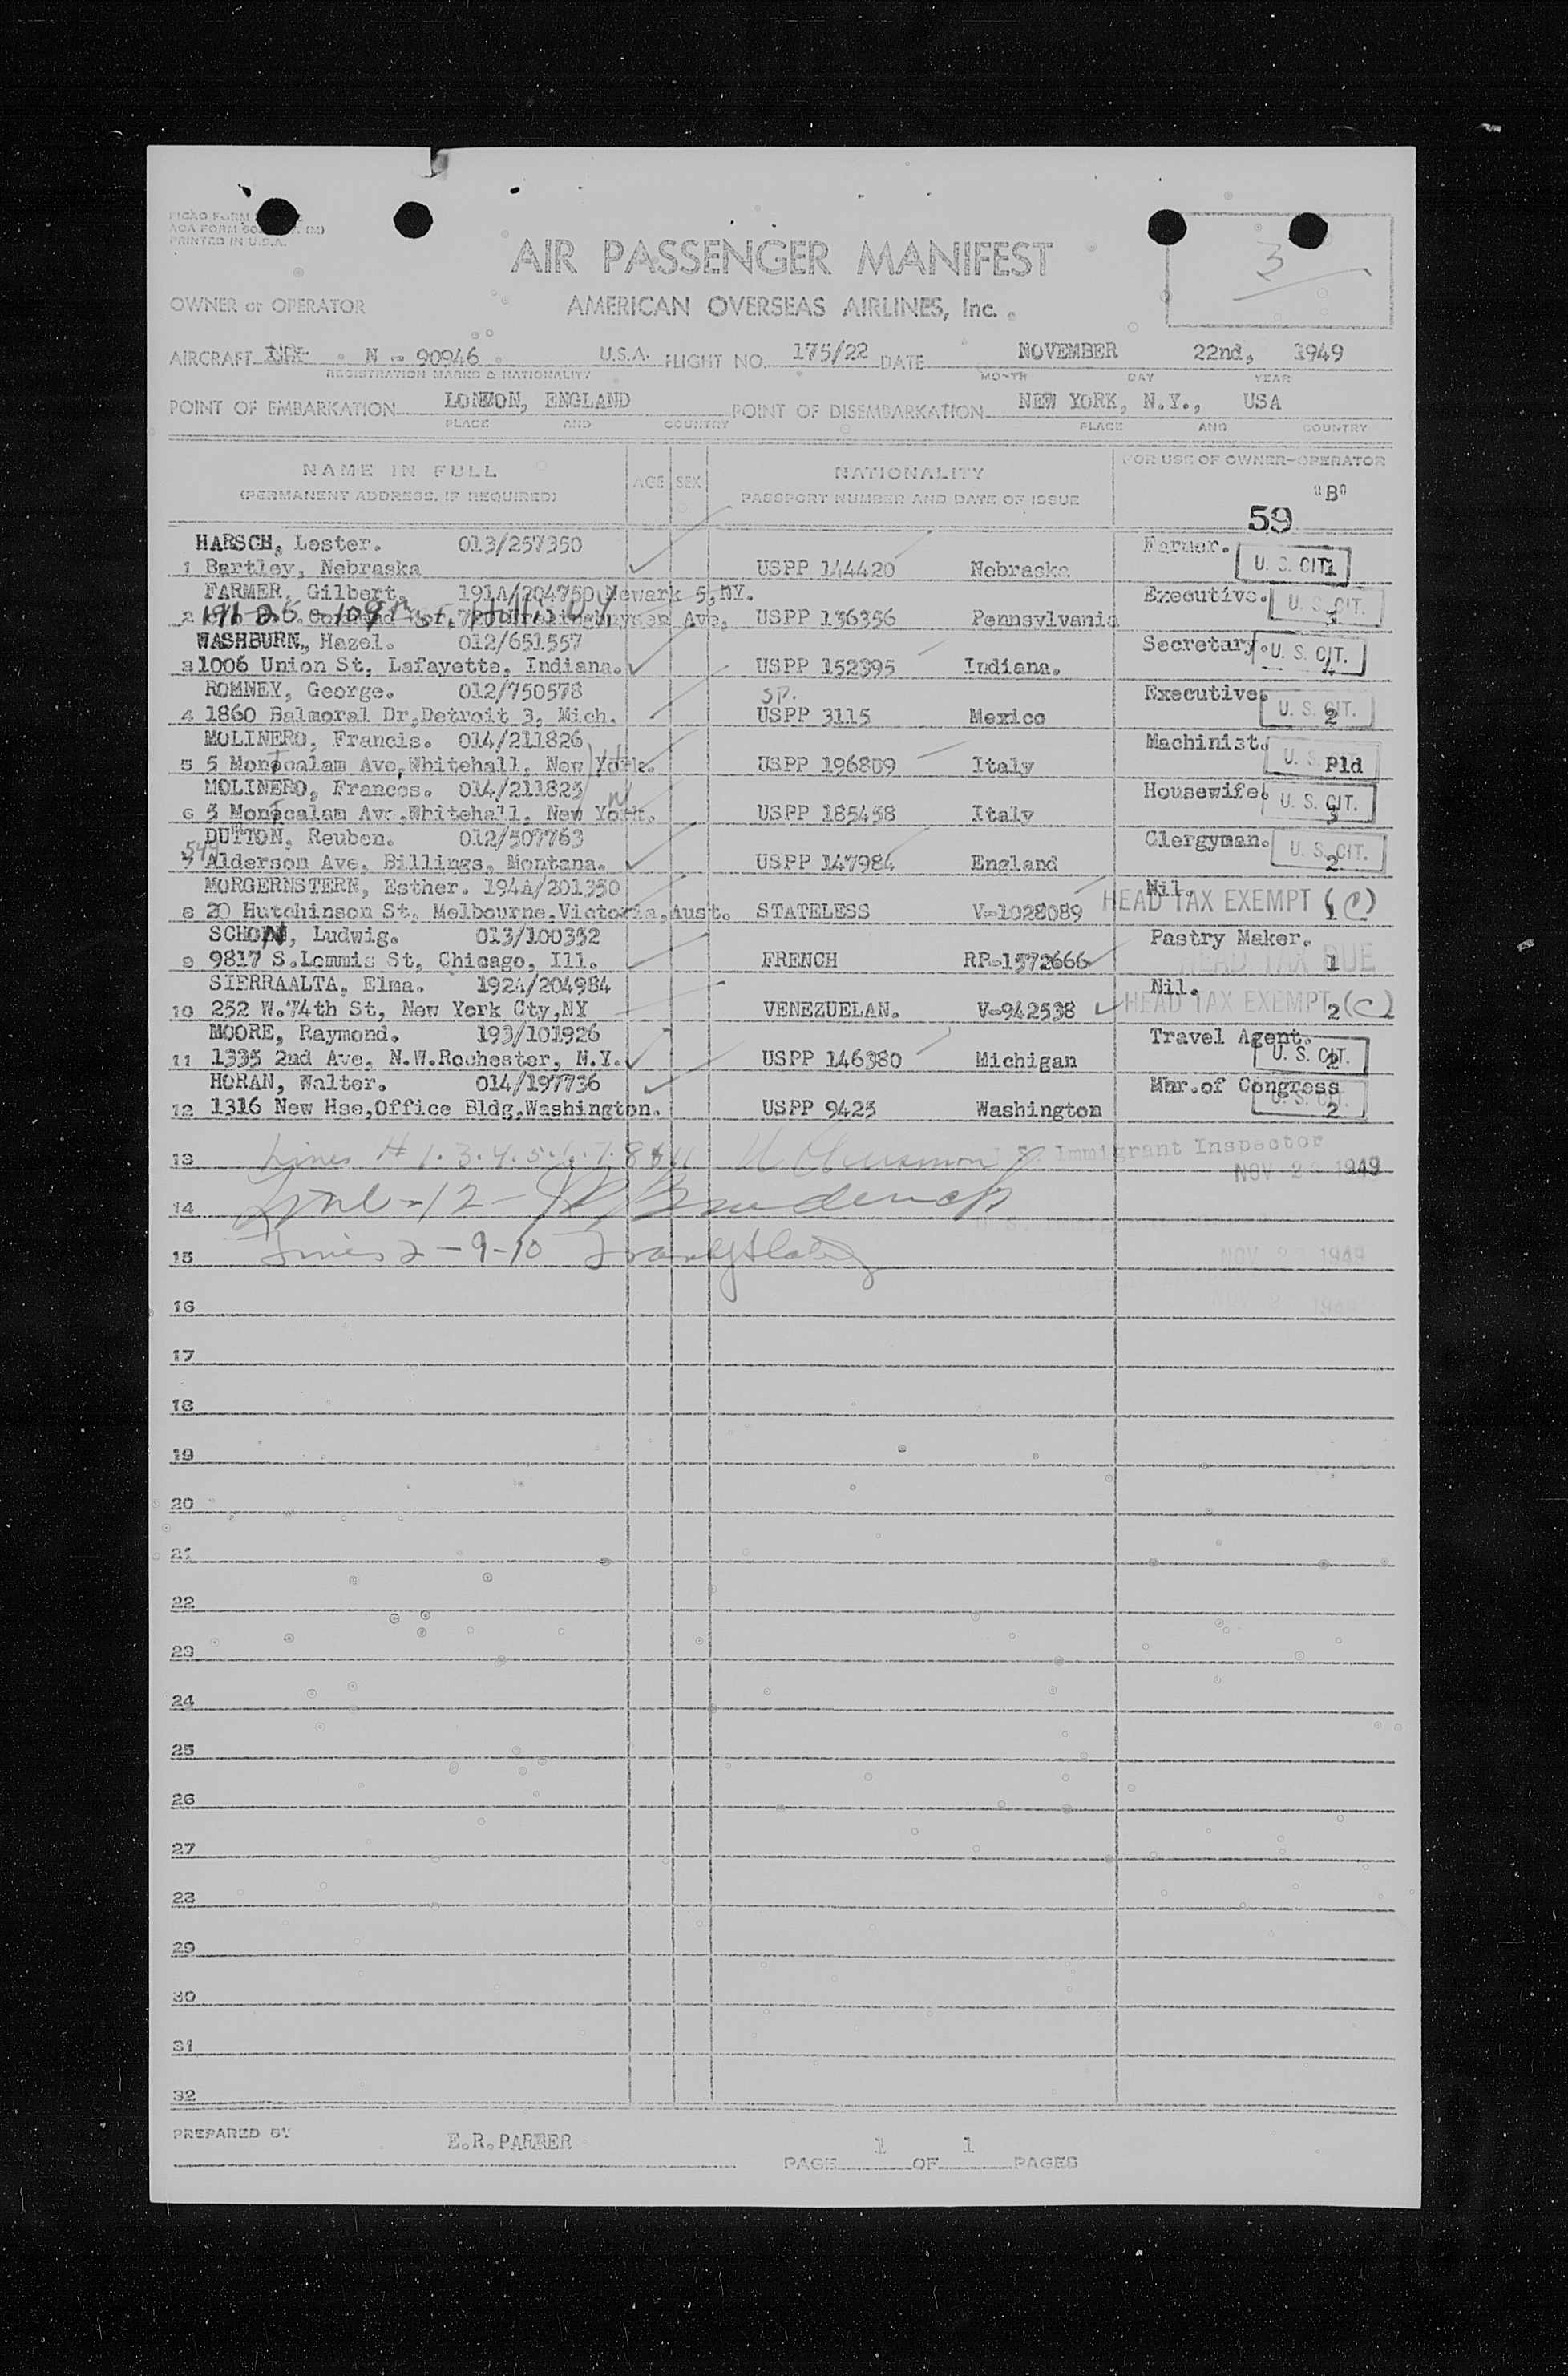 PICAO FORM
AOA FORM
PRINTED IN U.S.A.
3
AIR PASSENGER MANIFEST
OWNER or OPERATOR AMERICAN OVERSEAS AIRLINES, Inc.
AIRCRAFT N - 90946 U.S.A. FLIGHT NO. 175/22 DATE NOVEMBER 22nd, 1949
REGISTRATION MARKS & NATIONALITY MONTH DAY YEAR
POINT OF EMBARKATION LONDON, ENGLAND POINT OF DISEMBARKATION NEW YORK, N.Y., USA
PLACE AND COUNTRY PLACE AND COUNTRY
NAME IN FULL AGE SEX NATIONALITY FOR USE OF OWNER-OPERATOR
(PERMANENT ADDRESS, IF REQUIRED) PASSPORT NUMBER AND DATE OF ISSUE "B"
59
HARSCH, Lester. 013/257350 Farmer.
1 Bartley, Nebraska USPP 144420 Nebraska U. S. CIT. 1
FARMER, Gilbert. 191A/204750 Newark 5, NY. Executive.
2 191-26-109 Ave, USPP 136356 Pennsylvania U. S. CIT.
WASHBURN, Hazel. 012/651557 Secretary.
3 1006 Union St, Lafayette, Indiana. USPP 152395 Indiana. U. S. CIT.
ROMNEY, George. 012/750578 SP. Executive.
4 1860 Balmoral Dr,Detroit 3, Mich. USPP 3115 Mexico U. S. CIT. 2
MOLINERO, Francis. 014/211826 Machinist.
5 5 Montcalam Ave,Whitehall, New York. USPP 196809 Italy U. S. CIT. Pld
MOLINERO, Frances. 014/211825 Housewife.
6 5 Montcalam Ave,Whitehall, New York. USPP 185458 Italy U. S. CIT. 3
DUTTON, Reuben. 012/507763 Clergyman.
7 Alderson Ave, Billings, Montana. USPP 147984 England U. S. CIT. 2
MORGERNSTERN, Esther. 194A/201350 Nil.
8 20 Hutchinson St, Melbourne,Victoria,Aust. STATELESS V-1028089 HEAD TAX EXEMPT (C) 1
SCHON, Ludwig. 013/100352 Pastry Maker.
9 9817 S.Lommis St, Chicago, Ill. FRENCH RP-1572666 HEAD TAX DUE 1
SIERRAALTA, Elma. 192A/204984 Nil.
10 252 W.74th St, New York Cty,NY VENEZUELAN. V-942538 HEAD TAX EXEMPT (C) 2
MOORE, Raymond. 193/101926 Travel Agent.
11 1335 2nd Ave, N.W.Rochester, N.Y. USPP 146380 Michigan U. S. CIT. 2
HORAN, Walter. 014/197736 Mbr.of Congress
12 1316 New Hse,Office Bldg,Washington. USPP 9425 Washington U. S. CIT. 2
13 Lines # 1.3.4.5.6.7.8 & 11 Immigrant Inspector
NOV 23 1949
14 Line - 12 -
15 Lines 2 - 9 - 10 NOV 23 1949
16
17
18
19
20
21
22
23
24
25
26
27
28
29
30
31
32
PREPARED BY E.R.PARKER PAGE 1 OF 1 PAGES